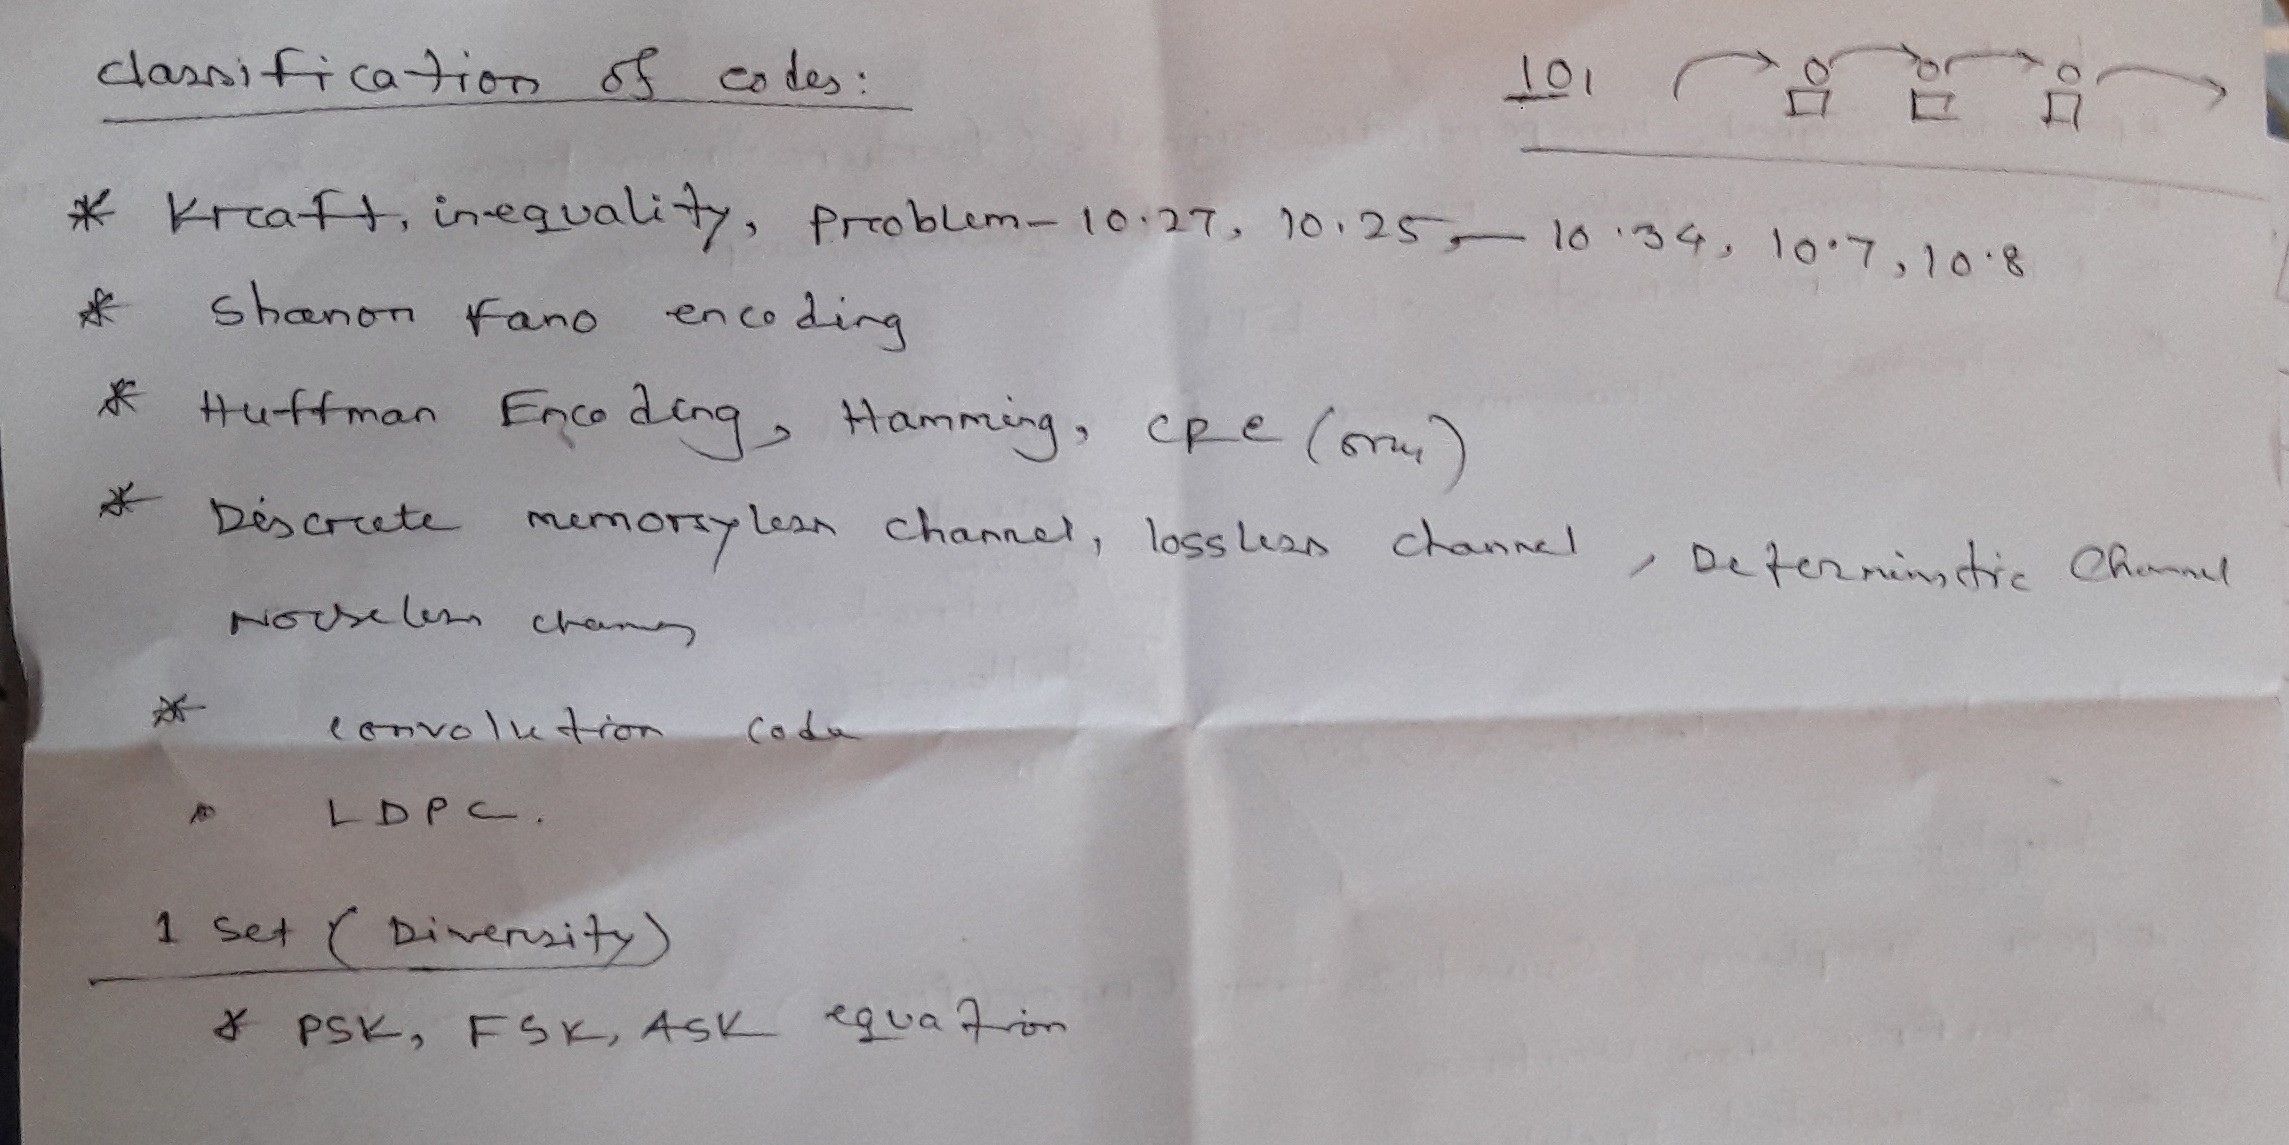 classification of codes:
101
* Krcaft, inequality, Prcoblem- 10.27, 10.25, — 10.34, 10.7, 10.8
* Shanon Fano encoding
* Huffman Encoding, Hamming, CRC
* Discrcete memorsyless channel, lossless channel, Deterministic Channel
Noiseless
* convolution code
* LDPC.
1 Set (Diversity)
* PSK, FSK, ASK equation